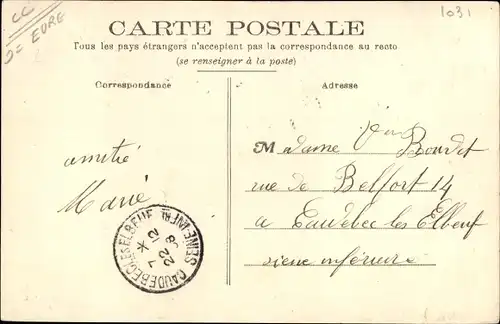 CC
D= EURE
1031
CARTE POSTALE
Tous les pays étrangers n'acceptent pas la correspondance au recto
(se renseigner à la poste)
Correspondance
Adresse
amitié
Marie
Madame Bourdet
rue de Belfort 14
a Caudebec les Elbeuf
siene inférieure
CAUDEBEC-LES-ELBEUF
SEINE-INFRE
7 * 12
22 - 8